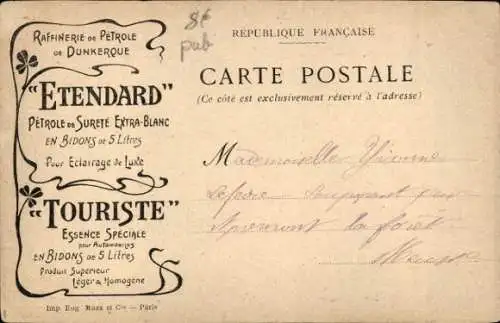 RAFFINERIE DE PÉTROLE
DE DUNKERQUE
"ETENDARD"
PÉTROLE DE SURETÉ EXTRA-BLANC
EN BIDONS DE 5 LITRES
Pour Eclairage de Luxe
"TOURISTE"
ESSENCE SPÉCIALE
pour Automobiles
EN BIDONS DE 5 LITRES
Produit Supérieur
Léger & Homogène
Imp. Eug. Marx et Cie — Paris
pub
RÉPUBLIQUE FRANÇAISE
CARTE POSTALE
(Ce côté est exclusivement réservé à l'adresse)
Mademoiselle Yvonne
la forêt